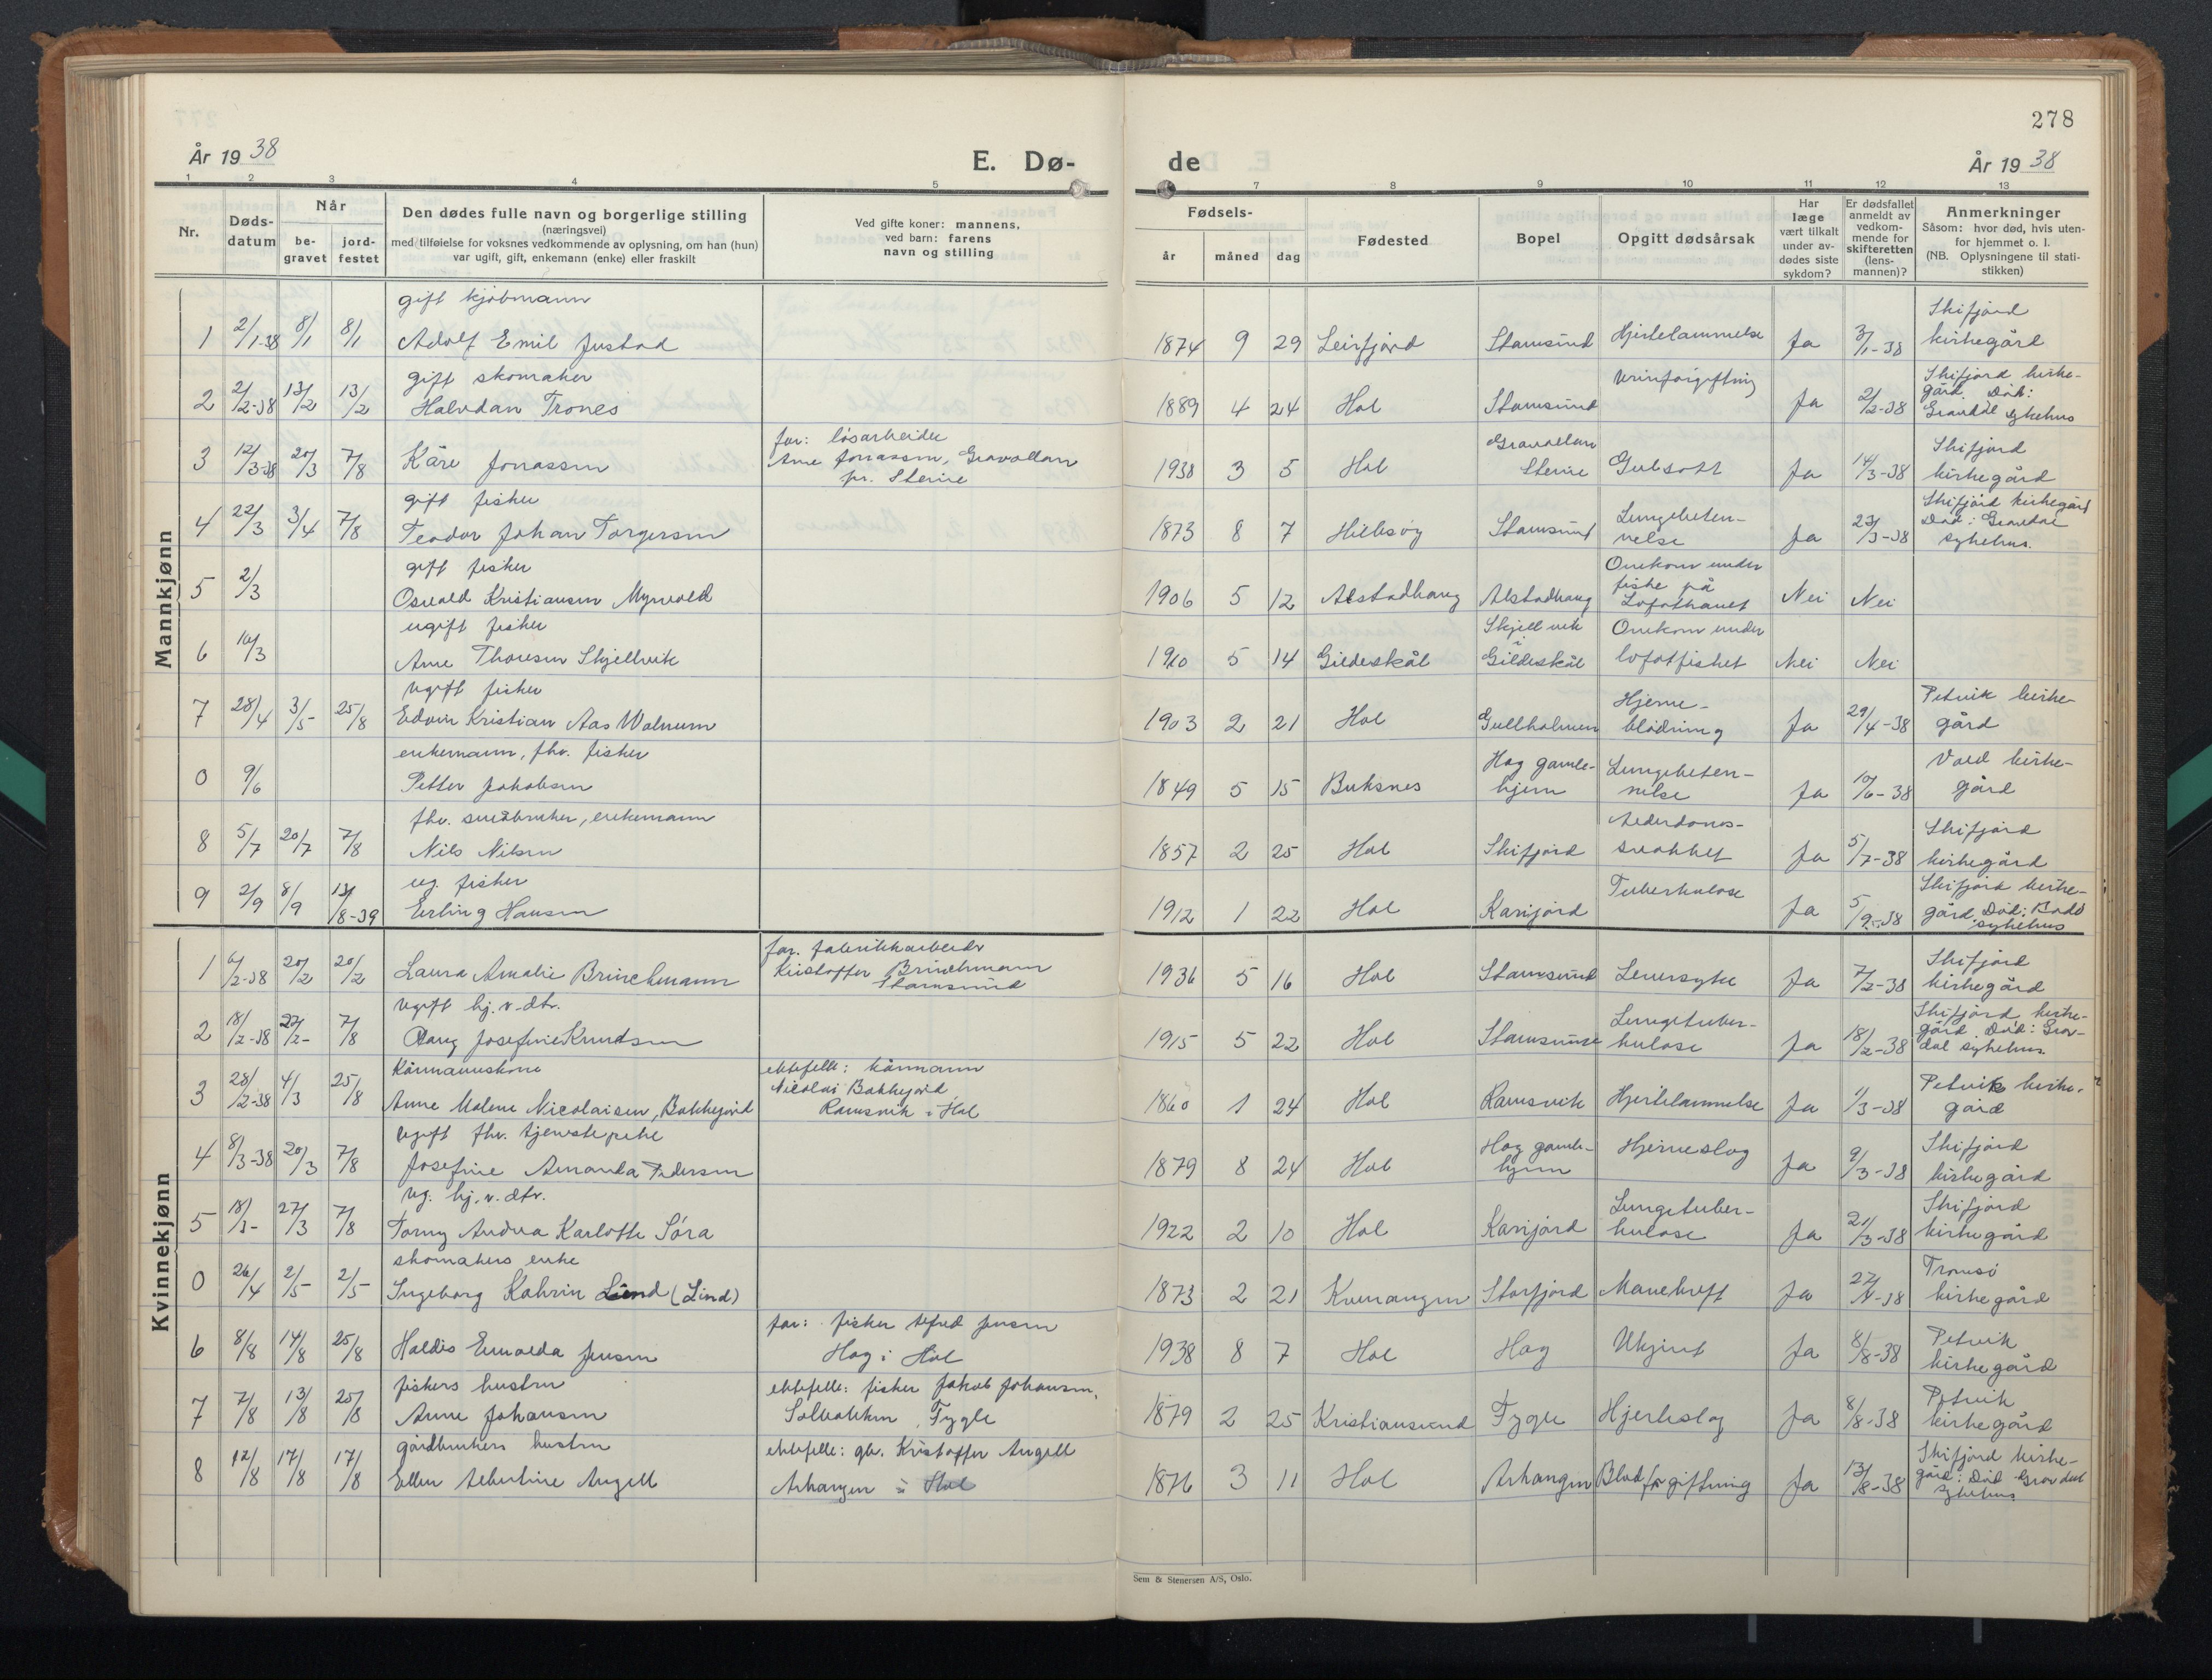 278
År 1938
E. Dø-
de
År 1938
1 2 3 4 5 7 8 9 10 11 12 13
Nr.
Døds-
datum
Når
be-
gravet
jord-
festet
Den dødes fulle navn og borgerlige stilling
(næringsvei)
med tilføielse for voksnes vedkommende av oplysning, om han (hun)
var ugift, gift, enkemann (enke) eller fraskilt
Ved gifte koner: mannens,
ved barn: farens
navn og stilling
Fødsels-
år måned dag
Fødested
Bopel
Opgitt dødsårsak
Har
læge
vært tilkalt
under av-
dødes siste
sykdom?
Er dødsfallet
anmeldt av
vedkom-
mende for
skifteretten
(lens-
mannen)?
Anmerkninger
Såsom: hvor død, hvis uten-
for hjemmet o. l.
(NB. Oplysningene til stati-
stikken)
Mannkjønn
gift kjøbmann Skifjord
1 2/1-38 8/1 8/1 Adolf Emil Justad 1874 9 29 Leirfjord Stamsund Hjertelammelse Ja 3/1-38 kirkegård
gift skomaker Urinforgiftning Skifjord kirke-
2 2/2-38 13/2 13/2 Halvdan Trones 1889 4 24 Hol Stamsund Ja 2/2-38 gård. Død:
Gravdal sykehus
far: løsarbeider Skifjord
3 12/3-38 20/3 7/8 Kåre Jonassen Arne Jonassen, 1938 3 5 Hol Steine Gulsott Ja 14/3-38 kirkegård
pr. Steine
gift fisker Lungebeten- Skifjord kirkegård
4 22/3 3/4 7/8 Teodor Johan Torgersen 1873 8 7 Stamsund nelse Ja 23/3-38 Død: Gravdal
sykehus.
gift fisker Omkom under
5 2/3 Osvald Kristiansen Myrvold 1906 5 12 Alstadhaug Alstadhaug fiske på Nei Nei
Lofothavet
ugift fisker Skjellvik Omkom under
6 16/3 Arne Thoresen Skjellvik 1910 5 14 Gildeskål i Gildeskål lofotfisket Nei Nei
Ugift fisker Hjerne- Petvik kirke-
7 28/4 3/5 25/8 Edvin Kristian Aas Walnum 1903 2 21 Hol Gullholmen blødning Ja 29/4-38 gård
enkemann, fhv. fisker Hag gamle- Lungebeten- Vold kirke-
0 9/6 Petter Jakobsen 1849 5 15 Buksnes hjem nelse Ja 10/6-38 gård
fhv. småbruker, enkemann Alderdoms- Skifjord
8 5/7 20/7 7/8 Nils Nilsen 1857 2 25 Hol Skifjord svakhet Ja 5/7-38 kirkegård
ug. fisker Tuberkulose Skifjord kirke-
9 2/9 8/9 13/8-39 Erling Hansen 1912 1 22 Hol Karijord Ja 5/9-38 gård. Død: Bodø
sykehus
Kvinnekjønn
far. fabrikkarbeider Skifjord
1 6/2-38 20/2 20/2 Laura Amalie Brinchmann Kristoffer Brinchmann 1936 5 16 Hol Stamsund Leversyke Ja 7/2-38 kirkegård
Stamsund
Ugift hj.v. dtr. Lungetuber- Skifjord kirke-
2 18/2-38 27/2- 7/8 Josefine Knudsen 1915 5 22 Hol Stamsund kulose Ja 18/2-38 gård. Død: Grav-
dal sykehus.
Kårmannskone ektefelle: kårmann Petvik kirke-
3 28/2-38 4/3 25/8 Anne Malene Nicolaisen, Bakkejord Nicolai Bakkejord 1860 1 24 Hol Ramsvik Hjertelammelse Ja 1/3-38 gård
Ramsvik i Hol
Ugift fhv. tjenstepike Hag gamle- Skifjord
4 8/3-38 20/3 7/8 Josefine Amanda Pedersen 1879 8 24 Hol hjem Hjerneslag Ja 9/3-38 kirkegård
ug. hj.v. dtr. Lungetuber- Skifjord
5 18/3- 27/3 7/8 Torny Andrea Karlotte Søra 1922 2 10 Hol Karijord kulose Ja 21/3-38 kirkegård
skomakers enke Tromsø
0 26/4 2/5- 2/5- Ingeborg Kathrin Lund (Lind) 1873 2 21 Kvenangen Storfjord Mavekreft Ja 27/4-38 kirkegård
far: fisker Alfred Jensen Petvik
6 8/8 14/8 25/8 Haldis Jensen Hag i Hol 1938 8 7 Hol Hag Ukjent Ja 8/8-38 kirkegård
fiskers hustru ektefelle: fisker Jakob Johansen, Petvik
7 7/8 13/8 25/8 Anne Johansen Solbakken, Fygle 1879 2 25 Kristiansund Fygle Hjerteslag Ja 8/8-38 kirkegård
gårdbrukers hustru ektefelle: gbr. Kristoffer Angell Skifjord kirke-
8 12/8 17/8 17/8 Ellen Albertine Angell Arhangen i Hol 1876 3 11 Hol Arhangen Blodforgiftning Ja 13/8-38 gård: Død Gravdal
sykehus
Sem & Stenersen A/S, Oslo.